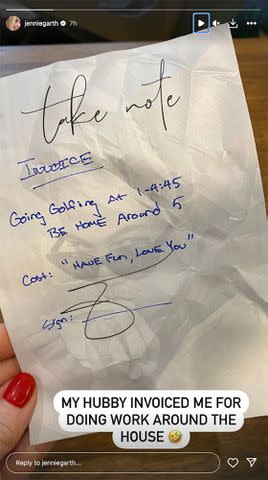 jenniegarth 7h
take note
INVOICE
Going Golfing At 1-4:45
BE HOME Around 5
Cost: "HAVE FUN, LOVE YOU"
Sign:
MY HUBBY INVOICED ME FOR
DOING WORK AROUND THE
HOUSE 🤣
Reply to jenniegarth...